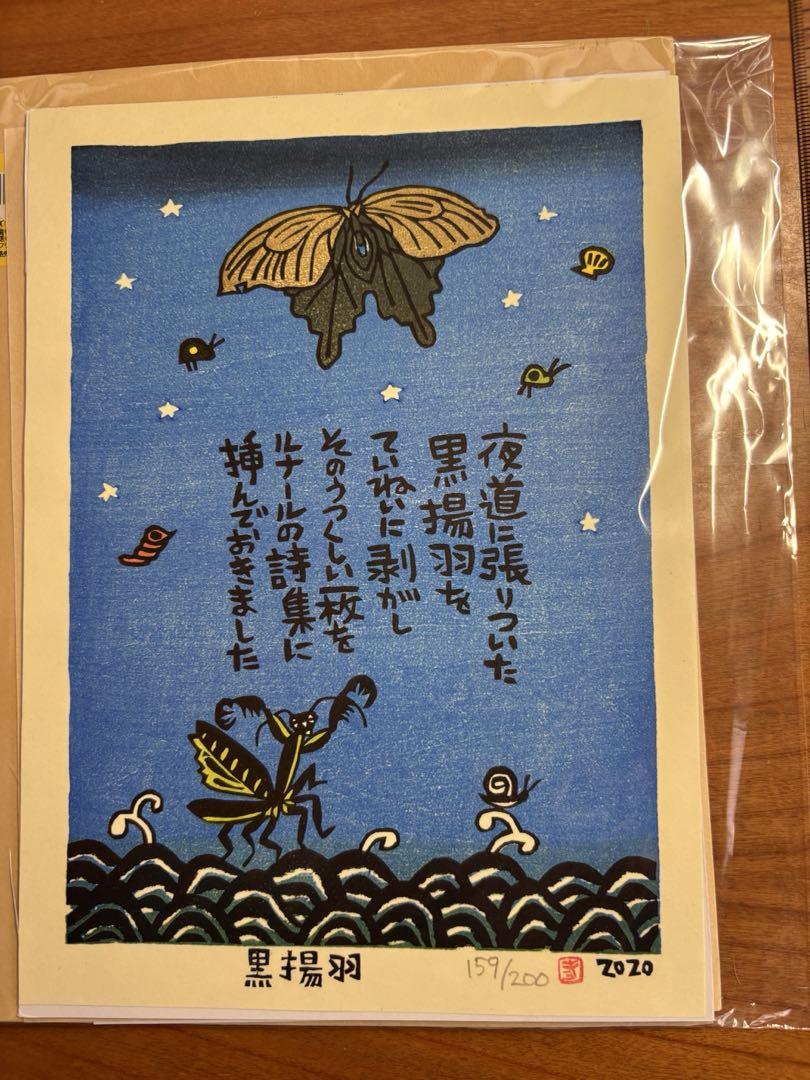 夜道に張りついた
黒揚羽を
ていねいに剥がし
そのうつくしい一枚を
ルナールの詩集に
挿んでおきました
黒揚羽
159/200
2020